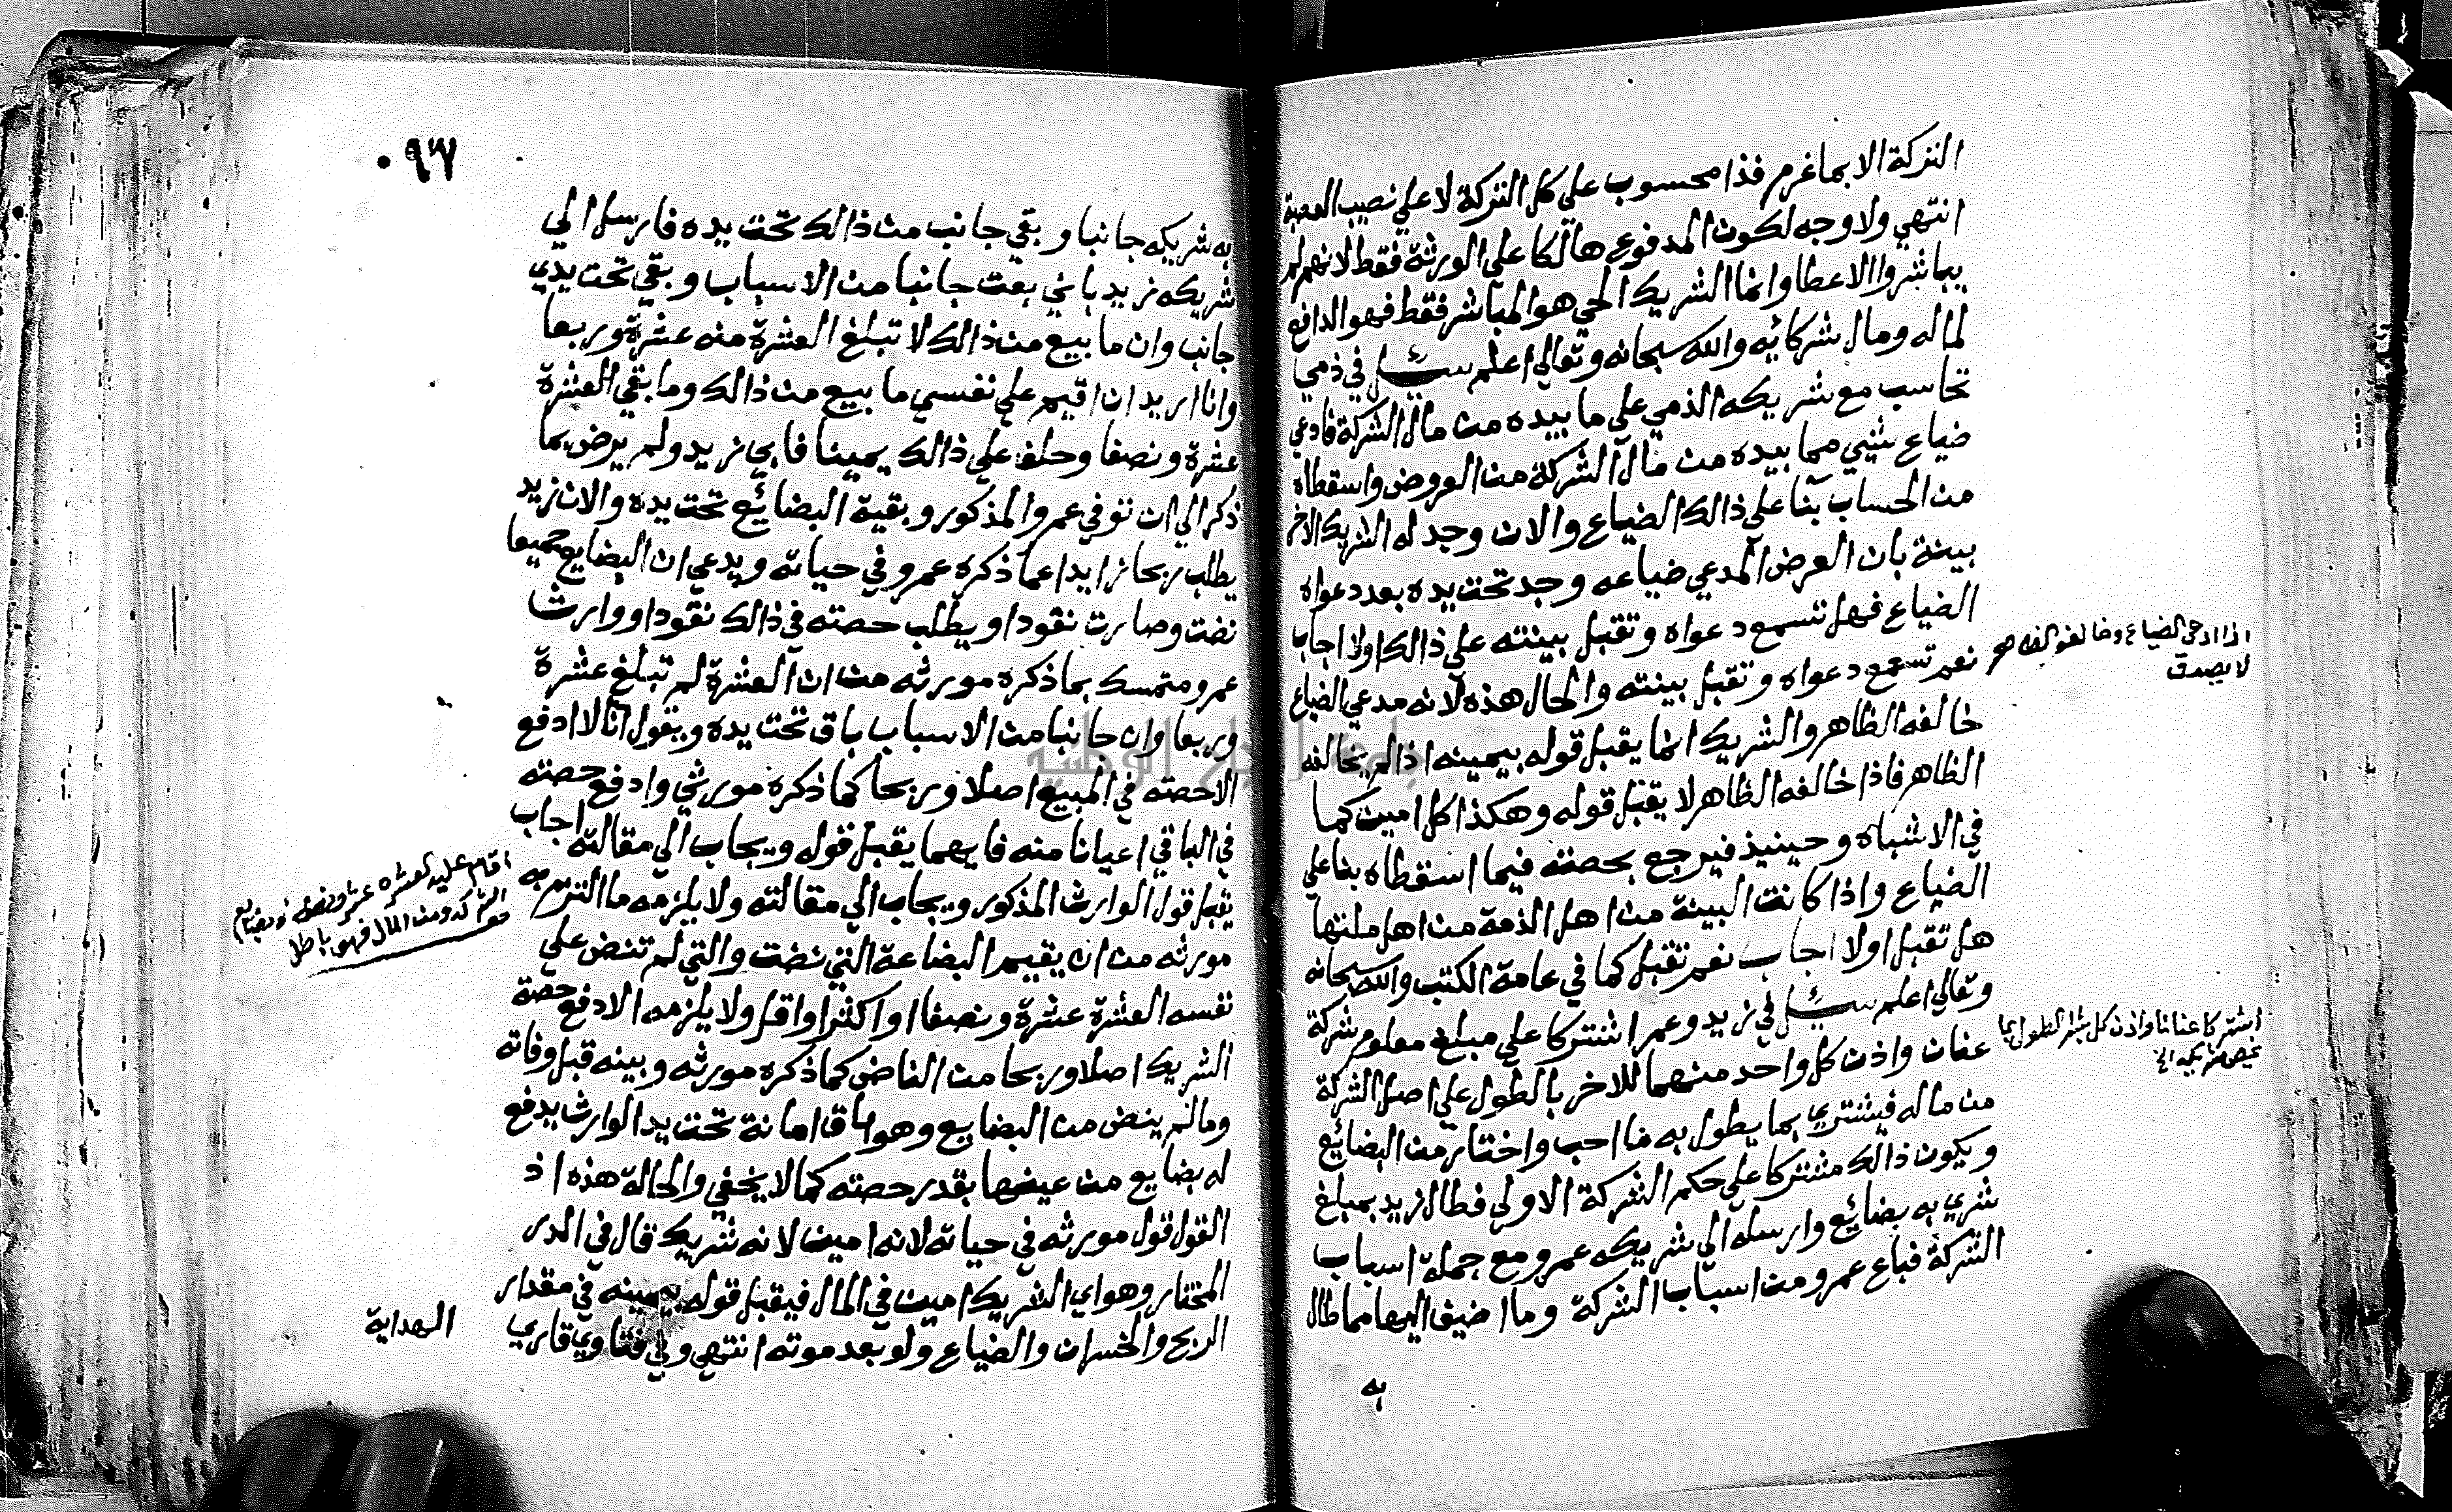 التركة الا بما غرم فذا محسوب علي كل التركة لا علي نصيب العصبة
انتهي ولا وجه لكون المدفوع هالكا علي الورثة فقط لانهم لم
يباشروا الاعطا وانما الشريك الحي هو المباشر فقط فهو الدافع
لماله ومال شركائه والله سبحانه وتعالي اعلم سئل في ذمي
تحاسب مع شريكه الذمي علي ما بيده من مال الشركة فادعي
ضياع شيي مما بيده من مال الشركة من العروض واسقطاه
من الحساب بنا علي ذالك الضياع والان وجد له الشريك الاخر
بينة بان العرض المدعي ضياعه وجد تحت يده بعد دعواه
الضياع فهل تسمع دعواه وتقبل بينته علي ذالك اولا اجاب
نعم تسمع دعواه وتقبل بينته والحال هذه لانه مدعي الضياع
خالفه الظاهر والشريك انما يقبل قوله بيمينه اذا لم يخالفه
الظاهر فاذا خالفه الظاهر لا يقبل قوله وهكذا كل امين كما
في الاشباه وحينيذ فيرجع بحصته فيما اسقطاه بنا علي
الضياع واذا كانت البينة من اهل الذمة من اهل ملتها
هل تقبل اولا اجاب نعم تقبل كما في عامة الكتب والله سبحانه
وتعالي اعلم سئل في زيد وعمر اشتركا علي مبلغ معلوم شركة
عنان واذن كل واحد منهما للاخر بالطول علي اصل الشركة
من ماله فيشتري بما يطول به ما احب واختار من البضائع
ويكون ذالك مشتركا علي حكم الشركة الاولي فطال زيد بمبلغ
شري به بضائع وارسله الي شريكه عمرو مع جملة اسباب
الشركة فباع عمرو من اسباب الشركة وما اضيف اليها مما طال
به
اذا ادعي الضياع وخالفه الظاهر
لا يصدق
اشتركا عنانا واذن كل بالطول بما
يخص شريكه الخ
٠٩٦
به شريكه جانبا وبقي جانب من ذالك تحت يده فارسل الي
شريكه زيد باني بعت جانبا من الاسباب وبقي تحت يدي
جانب وان ما بيع من ذالك لا تبلغ العشرة منه عشرة وربعا
وانا اريد ان اقيم علي نفسي ما بيع من ذالك وما بقي العشرة
عشرة ونصفا وحلف علي ذالك يمينا فابي زيد ولم يرض بما
ذكر الي ان توفي عمرو المذكور وبقية البضائع تحت يده والان زيد
يطلب ربحا زايدا عما ذكره عمرو في حياته ويدعي ان البضايع جميعا
نضت وصارت نقودا ويطلب حصته في ذالك نقودا ووارث
عمرو متمسك بما ذكره مورثه من ان العشرة لم تبلغ عشرة
وربعا وان جانبا من الاسباب باق تحت يده ويقول انا لا ادفع
الا حصته في المبيع اصلا وربحا كما ذكره مورثي وادفع حصته
في الباقي اعيانا منه فايهما يقبل قوله ويجاب الي مقالته اجاب
يقبل قول الوارث المذكور ويجاب الي مقالته ولا يلزمه ما التزم به
مورثه من ان يقيم البضاعة التي نضت والتي لم تنض علي
نفسه العشرة عشرة ونصفا او اكثر او اقل ولا يلزمه الا دفع حصة
الشريك اصلا وربحا من الناض كما ذكره مورثه وبينه قبل وفاته
وما لم ينض من البضايع وهو باق امانة تحت يد الوارث يدفع
له بضايع من عينها بقدر حصته كما لا يخفي والحالة هذه اذ
القول قول مورثه في حياته لانه امين لانه شريك قال في الدر
المختار وهو اي الشريك امين في المال فيقبل قوله بيمينه في مقدار
الربح والخسران والضياع ولو بعد موته انتهي وفي فتاوي قاري
الهداية
اقام عليه العشره عشر ونصف
الشركه ومن المال فهو باطل